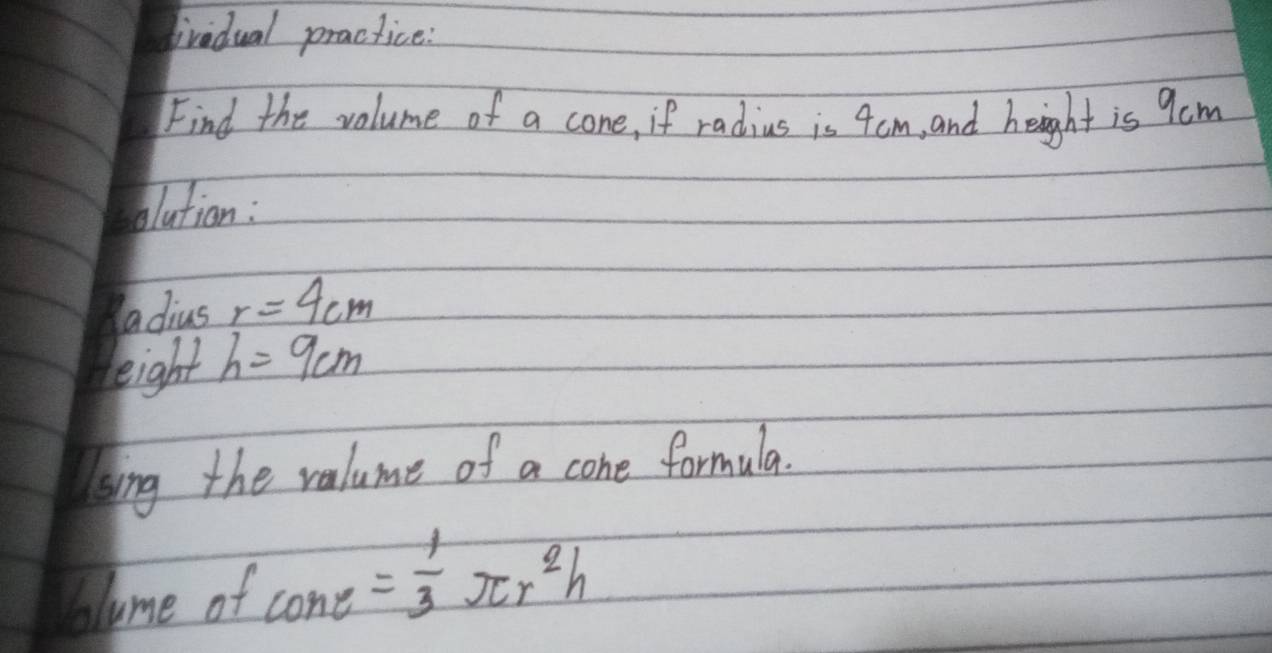 Individual practice:
Find the volume of a cone, if radius is 4cm, and height is 9cm
Solution:
Radius r = 4cm
Height h = 9cm
Using the valume of a cone formula.
Volume of cone = 1/3 πr²h